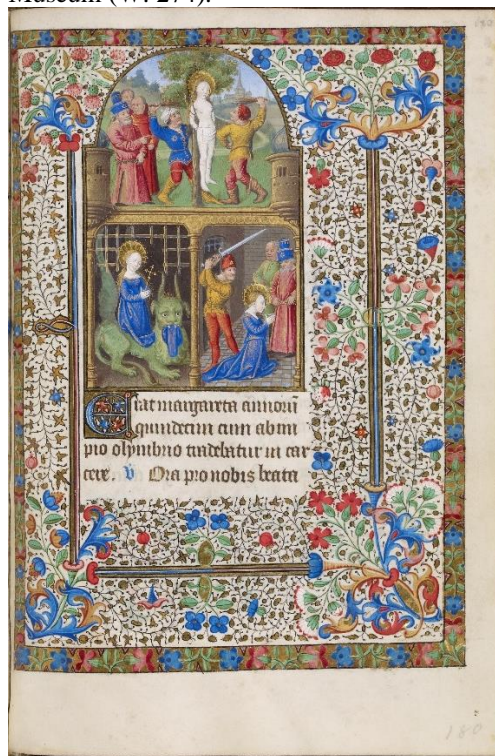 Museum (W. 274).
180
Erat margareta annorū
quindecim cum ab im
pio olymbrio tradebatur in car
cere. v Ora pro nobis beata
180